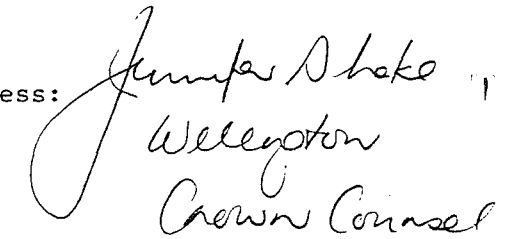 ess: Jennifer Shake
Wellington
Crown Counsel